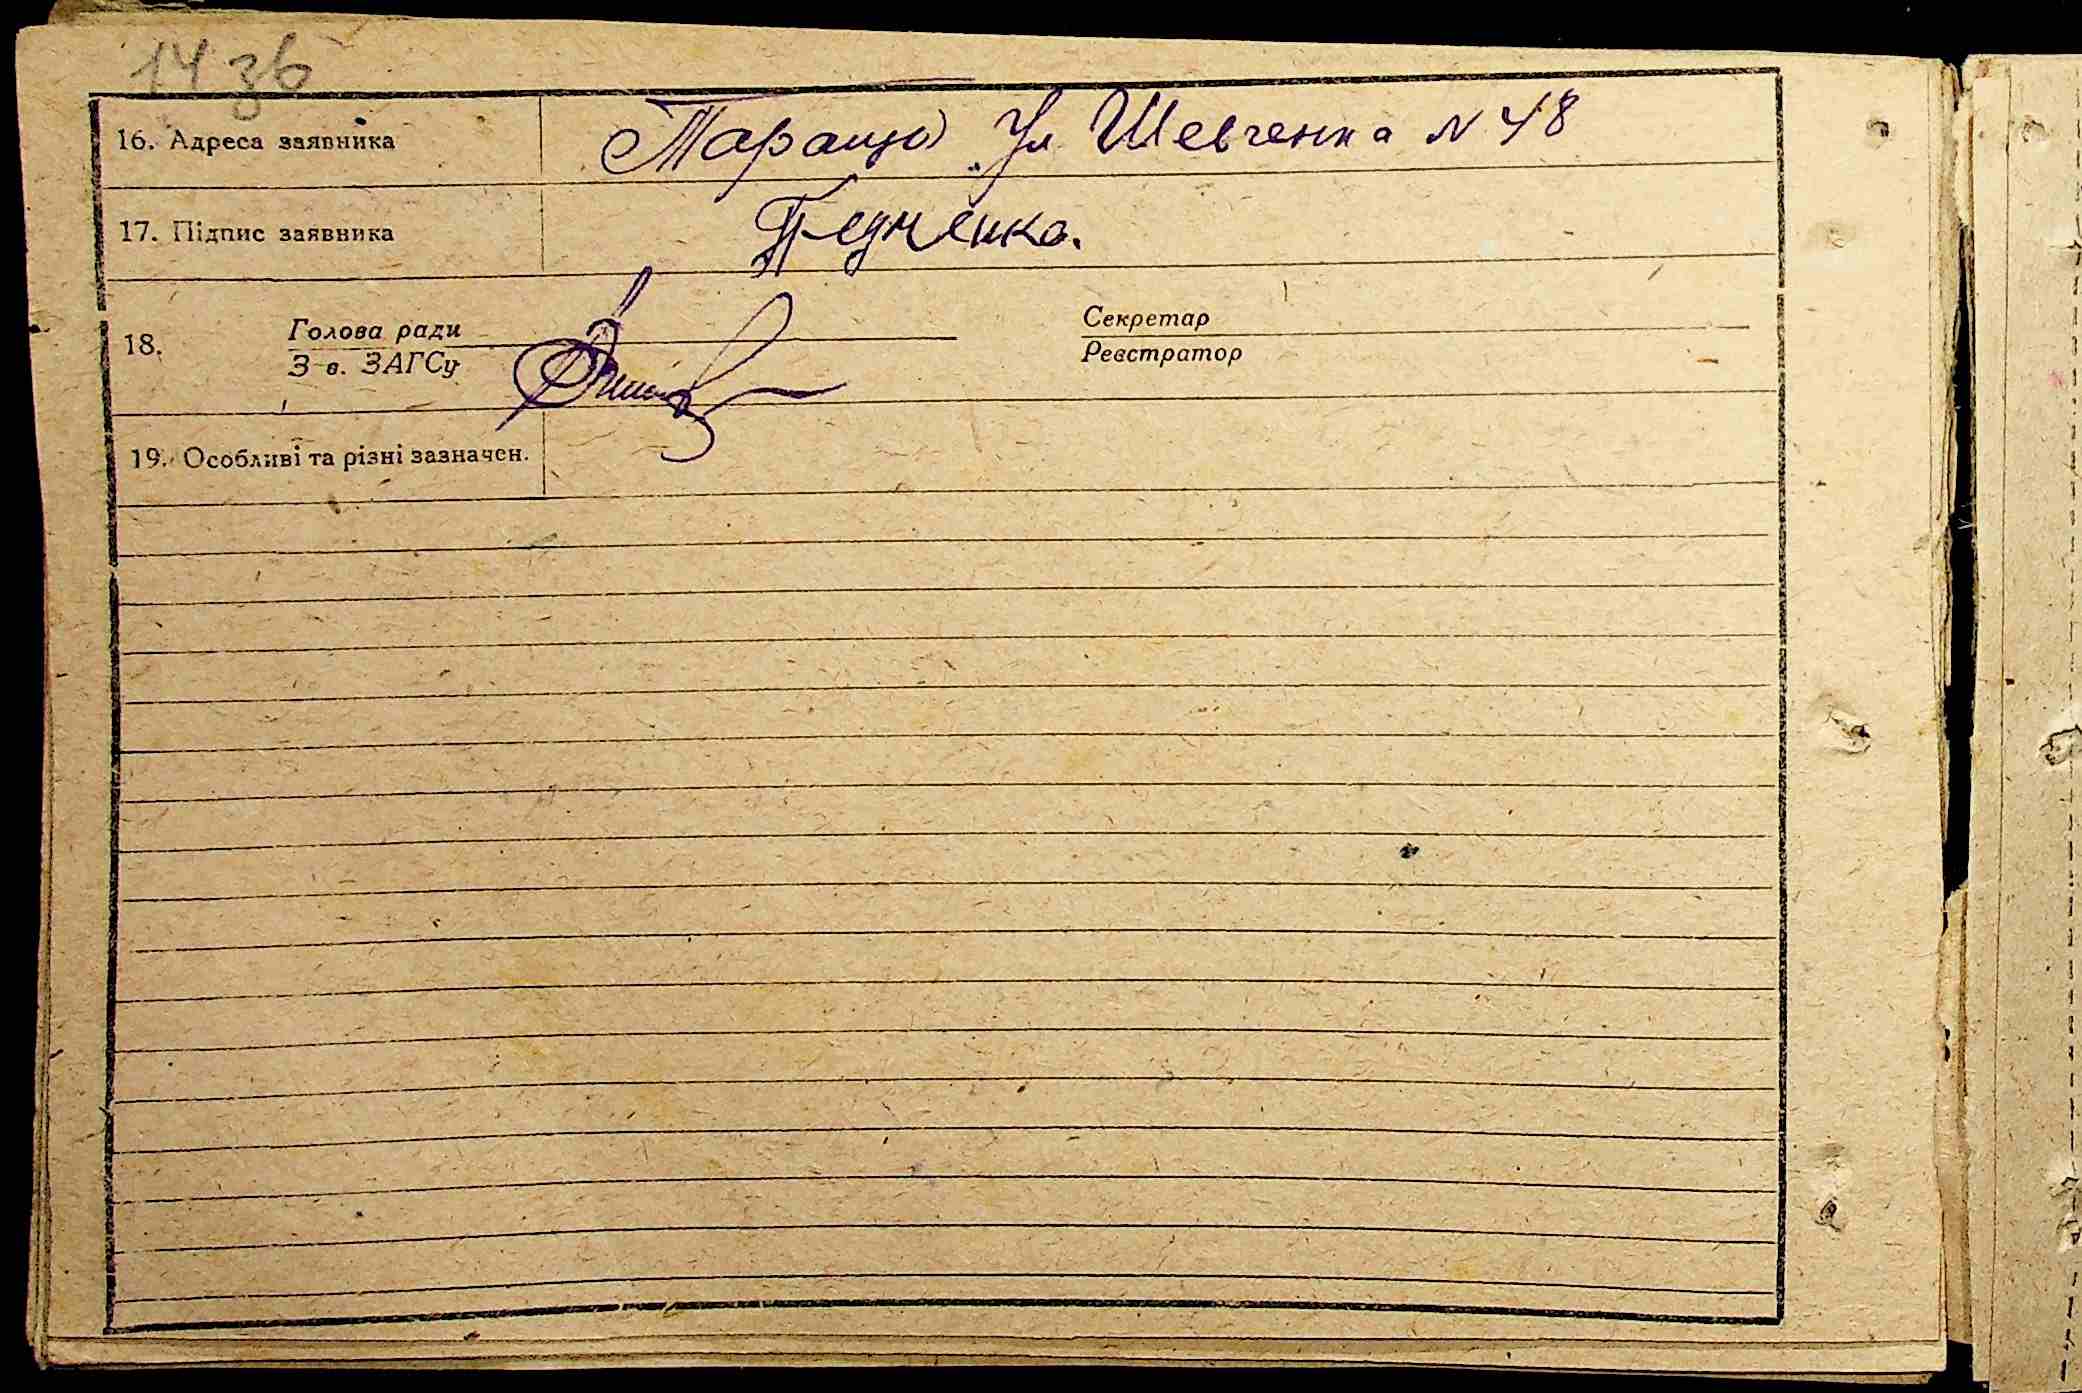 14 зв
16. Адреса заявника Тараща Ул Шевченка N 48
17. Підпис заявника
18. Голова ради Секретар
З-в. ЗАГСу Реєстратор
19. Особливі та різні зазначен.